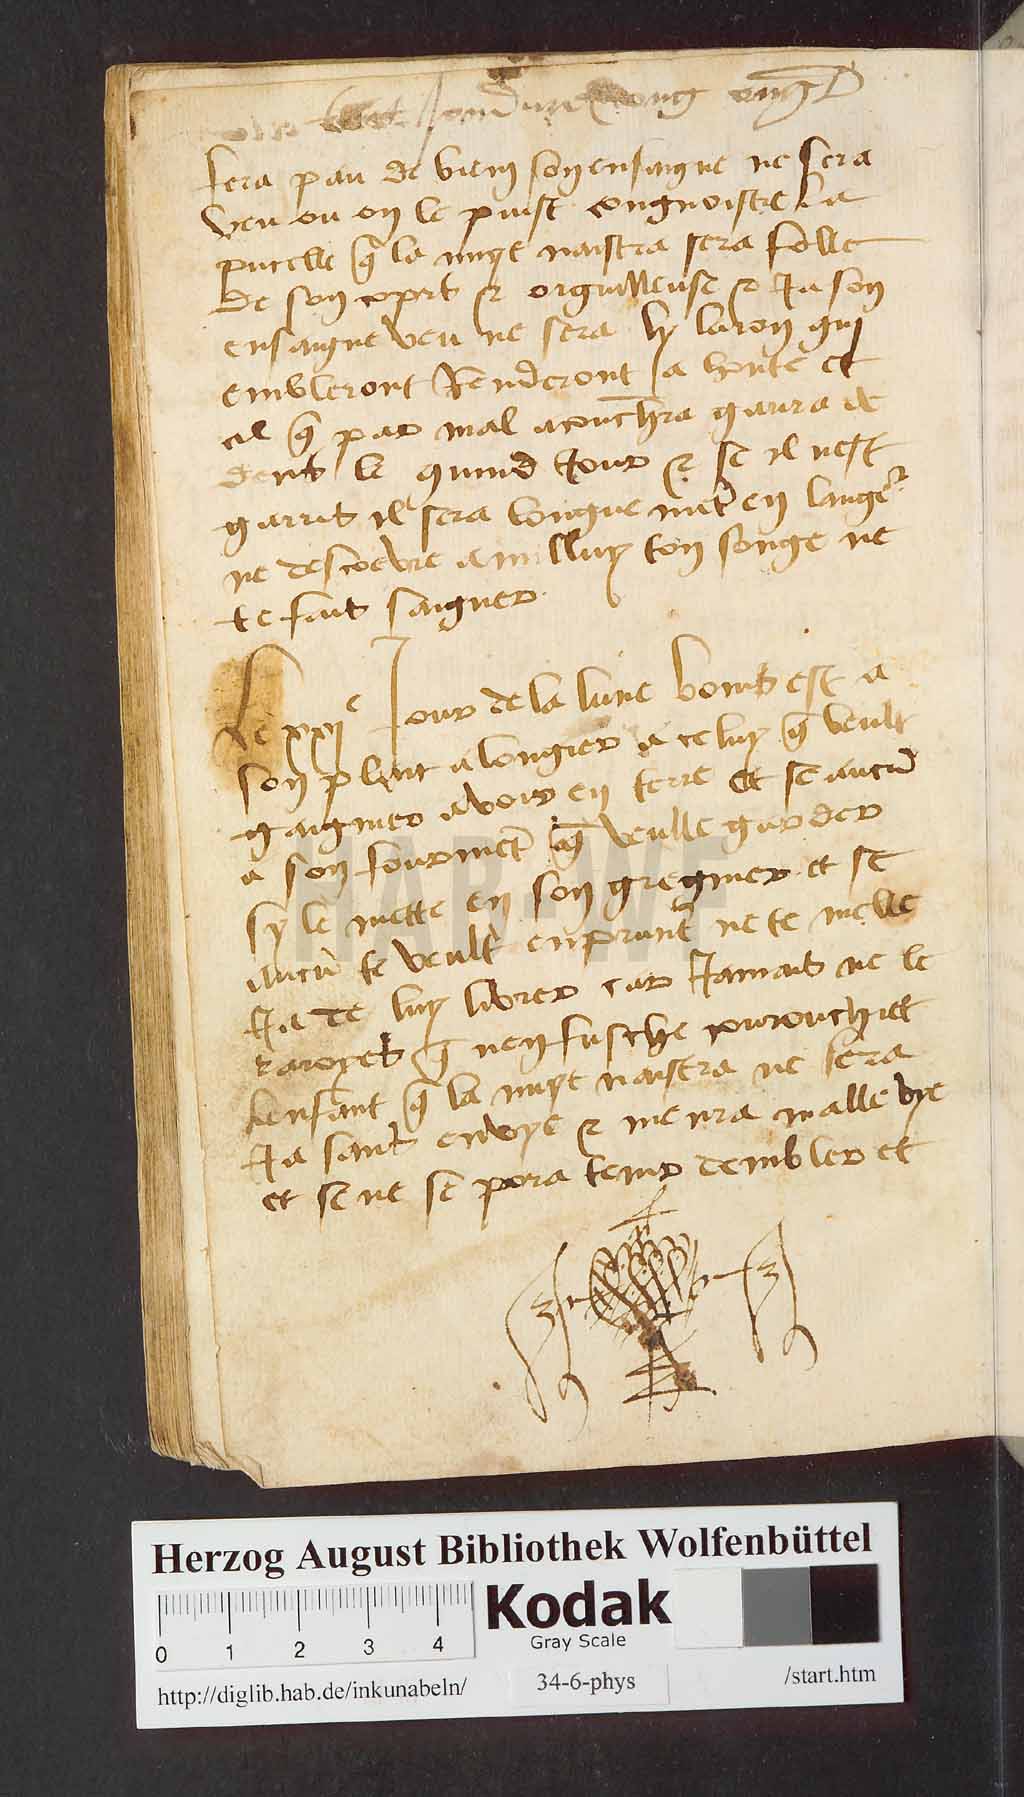 sera pau de bien son ensaigne ne sera
veu ou on le puist congnoistre La
pucelle q̄ la nuyt naistra sera folle
de son corps et orguilleuse et Ja son
ensaigne veu ne sera ly laron qui
embleront Renderont a honte et
cil q̄ par mal acouch̄ra garra de
dens le quind Jour et se il nest
garris il sera longuemēt en langer
ne descoevre a nulluy ton songe ne
te fait saigner
Le xxjᵉ Jour de la lune bons est a
son plait alongier a celuy q̄ veult
gaignier avoir en terre et se aucū
a son fourmēt q̄ veulle garder
sy le mette en son gregnier et se
aucū te veult enprunt̄ ne te melle
Ja de luy livrer car Jamais ne le
raroyes q̄ nen fusche courouchiet
Lenfant q̄ la nuyt naistra ne sera
Ja sans envye et menra malle vye
et se ne se pora tenir dembler et
HAB-WF
Herzog August Bibliothek Wolfenbüttel
0 1 2 3 4
Kodak
Gray Scale
http://diglib.hab.de/inkunabeln/ 34-6-phys /start.htm